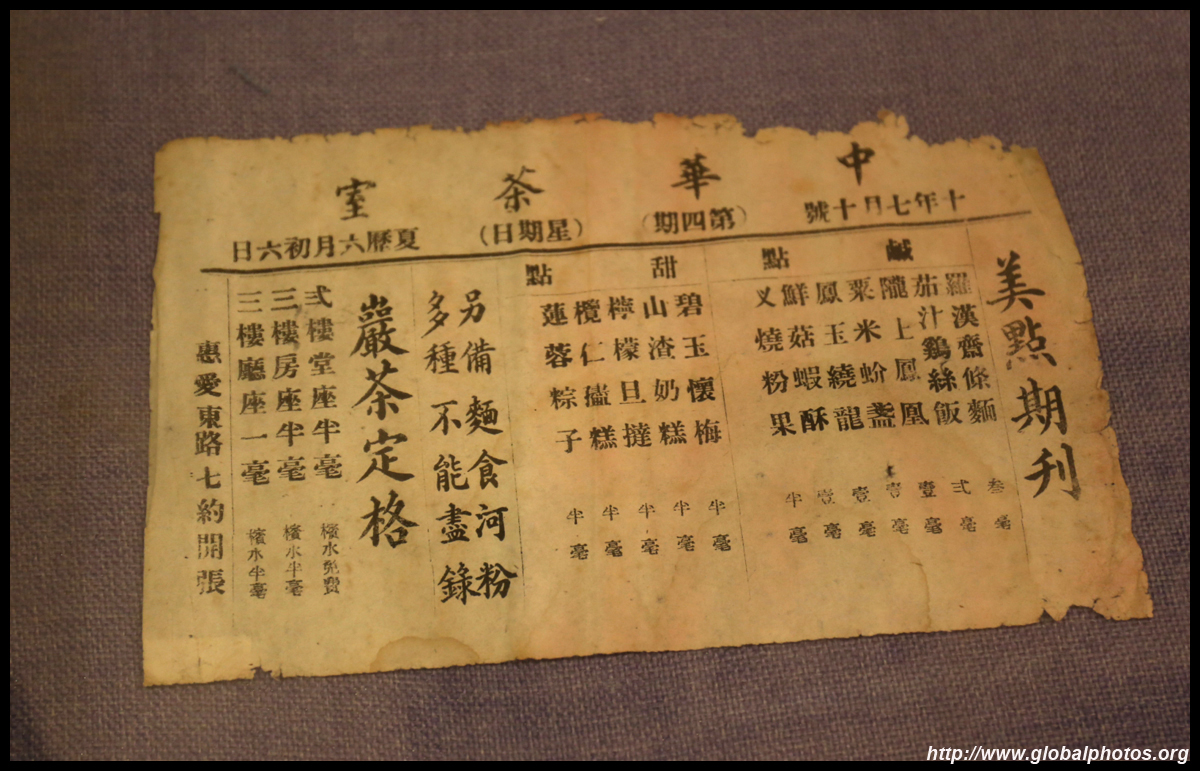 中華茶室
十年七月十號 (第四期) (星期日) 夏曆六月初六日
美點期刊
鹹點
羅漢齋條麵 叁毫
茄汁鷄絲飯 弍毫
隴上鳳凰 壹毫
粟米蚧盞 壹毫
鳳玉繞龍 壹毫
鮮菇蝦酥 壹毫
叉燒粉果 半毫
甜點
碧玉懷梅 半毫
山渣奶糕 半毫
檸檬旦撻 半毫
欖仁糕 半毫
蓮蓉粽子 半毫
另備麵食河粉
多種不能盡錄
巖茶定格
弍樓堂座半毫 檳水免費
三樓房座半毫 檳水半毫
三樓廳座一毫 檳水半毫
惠愛東路七約開張
http://www.globalphotos.org